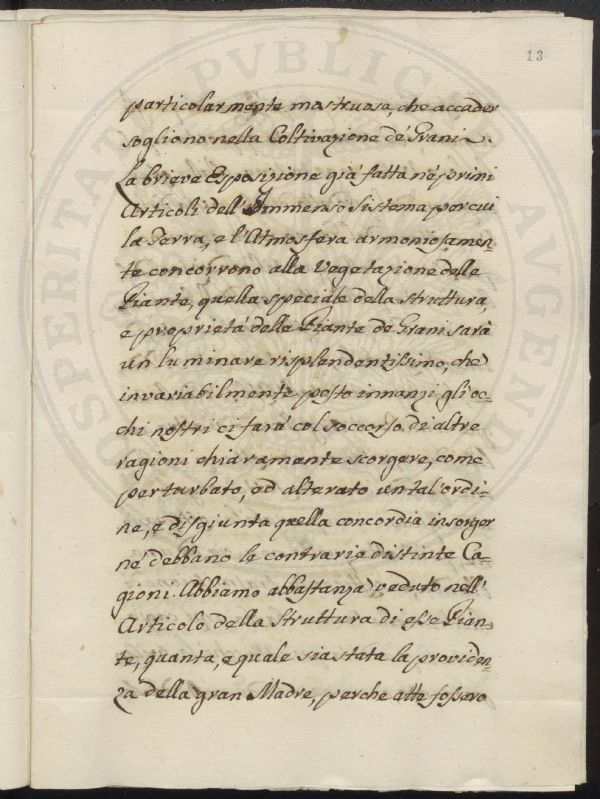 13
particolarmente mostruosa, che accader
sogliono nella Coltivazione de' Grani.
La brieve Esposizione già fatta ne' primi
Articoli dell' Immenso Sistema per cui
la Terra, e l'Atmosfera armoniosamen-
te concorrono alla Vegetazione delle
Piante, quella speciale della struttura,
e proprietà delle Piante de Grani sarà
un luminare risplendentissimo, che
invariabilmente posto innanzi gli oc-
chi nostri ci farà col soccorso di altre
ragioni chiaramente scorgere, come
perturbato, ed alterato un tal' ordi-
ne, e disgiunta quella concordia insorger
ne debbano le contraria distinte Ca-
gioni. Abbiamo abbastanza veduto nell'
Articolo della Struttura di esse Pian-
te, quanta, e quale sia stata la providen-
za della gran Madre, perche atte fossero
POSTERITATI PVBLICAE AVGENDAE